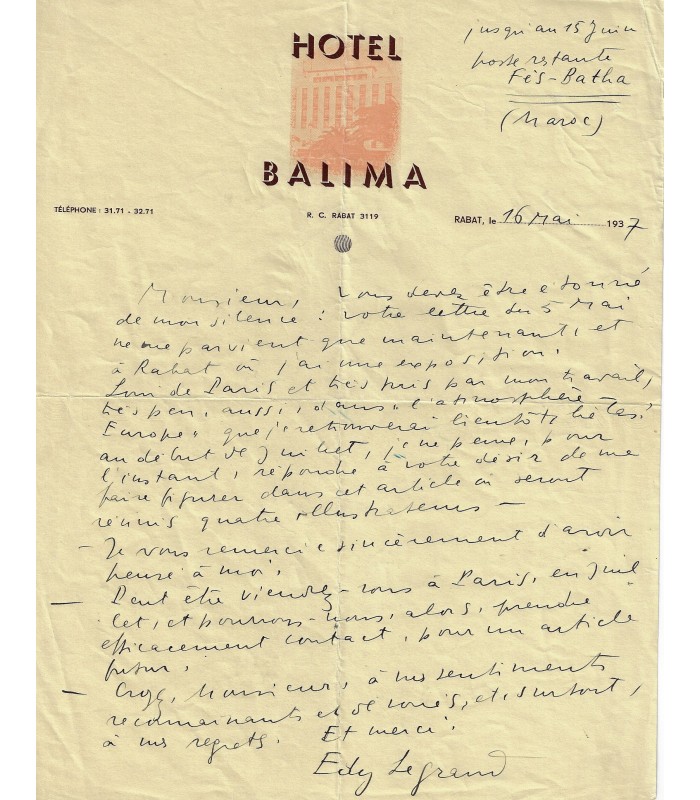 jusqu'au 15 Juin
poste restante
Fès-Batha
(Maroc)
HOTEL
BALIMA
TÉLÉPHONE : 31.71 - 32.71
R. C. RABAT 3119
RABAT, le 16 Mai 1937
Monsieur, Vous devez être étonné
de mon silence : votre lettre du 5 Mai
ne me parvient que maintenant, et
à Rabat où j'ai une exposition.
Loin de Paris et très pris par mon travail,
très peu, aussi, dans "l'atmosphère-
Europe" que je retrouverai bientôt, hélas!
au début de Juillet, je ne peux, pour
l'instant, répondre à votre désir de me
faire figurer dans cet article où seront
réunis quatre illustrateurs -
- Je vous remercie sincèrement d'avoir
pensé à moi.
- Peut être viendrez-vous à Paris, en Juil
let, et pourrons-nous, alors, prendre
efficacement contact, pour un article
futur.
- Croyez, Monsieur, à mes sentiments
reconnaissants et dévoués, et, surtout,
à mes regrets. Et merci.
Edy Legrand